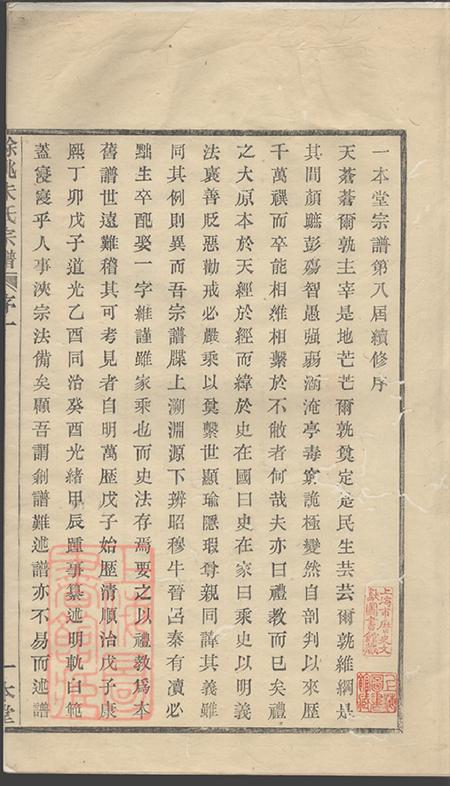 一本堂宗譜第八屆續修序
天蒼蒼爾孰主宰是地芒芒爾孰奠定是民生芸芸爾孰維綱是
其間顏蹠彭殤智愚强弱涵淹亭毒窮詭極變然自剖判以來歷
千萬禩而卒能相維相繫於不敝者何哉夫亦曰禮教而已矣禮
之大原本於天經於經而緯於史在國曰史在家曰乘史以明義
法裒善貶惡勸戒必嚴乘以奠繫世顯瑜隱瑕尊親同諱其義雖
同其例則異而吾宗譜牒上溯淵源下辨昭穆牛晉呂秦有瀆必
黜生卒配娶一字維謹雖家乘也而史法存焉要之以禮教爲本
舊譜世遠難稽其可考見者自明萬歷戊子始歷清順治戊子康
熙丁卯戊子道光乙酉同治癸酉光緒甲辰踵事纂述明軌白範
蓋寖寖乎人事浹宗法備矣顧吾謂創譜難述譜亦不易而述譜
餘姚朱氏宗譜
序一
一本堂
上海市歷史文獻圖書館藏